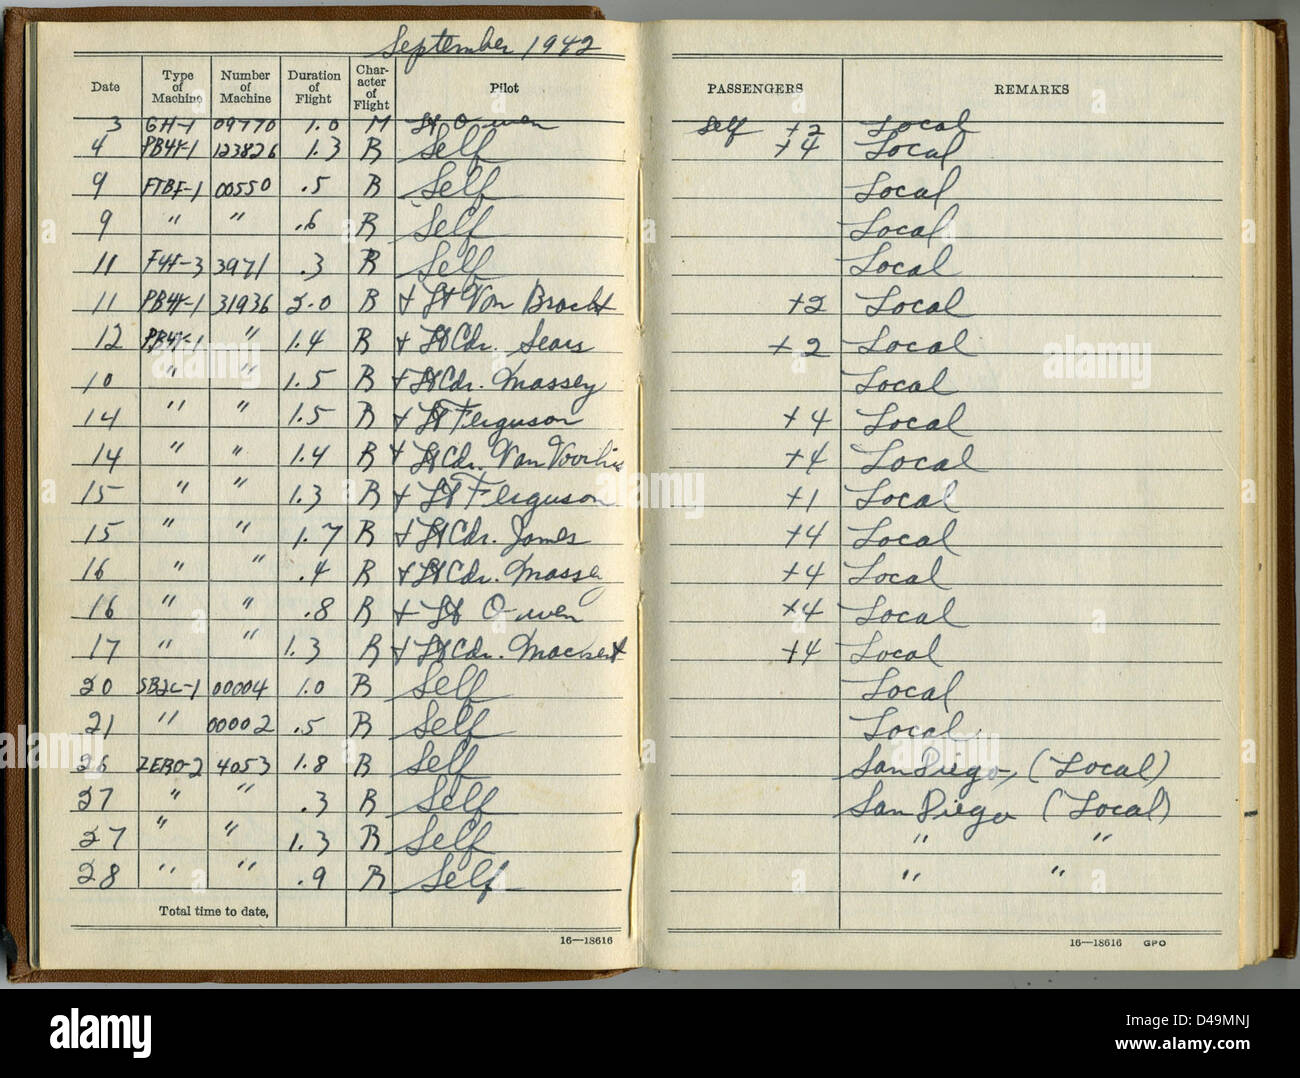 September 1942
Date Type of Machine Number of Machine Duration of Flight Char-acter of Flight Pilot PASSENGERS REMARKS
3 GH-1 09770 1.0 M Lt Owen Self +2 Local
4 PB4Y-1 123826 1.3 B Self +4 Local
9 FTBF-1 00550 .5 B Self Local
9 " " .6 B Self Local
11 F4F-3 3971 .3 B Self Local
11 PB4Y-1 31936 2.0 B + Lt Von Bracht +2 Local
12 PB4Y-1 " 1.4 B + Lt Cdr. Sears +2 Local
10 " " 1.5 B + Lt Cdr. Massey Local
14 " " 1.5 B + Lt Ferguson +4 Local
14 " " 1.4 B + Lt Cdr. Van Voorhis +4 Local
15 " " 1.3 B + Lt Ferguson +1 Local
15 " " 1.7 B + Lt Cdr. James +4 Local
16 " " .4 B + Lt Cdr. Massey +4 Local
16 " " .8 B + Lt Owen +4 Local
17 " " 1.3 B + Lt Cdr. +4 Local
20 SB2C-1 00004 1.0 B Self Local
21 " 00002 .5 B Self Local
26 ZERO-2 4053 1.8 B Self San Diego, (Local)
27 " " .3 B Self San Diego (Local)
27 " " 1.3 B Self " "
28 " " .9 B Self " "
Total time to date,
16—18616
16—18616 GPO
alamy
alamy
Image ID: D49MNJ
www.alamy.com